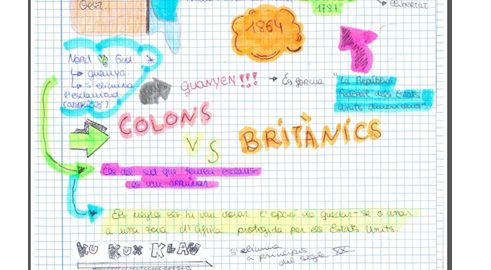 Oest
1864
1787
llibertat
Nord vs Sud
guanya
s'elimina
l'esclavitud
guanyen!!!
Es forma "la República
Federal dels Estats
Units
COLONS
VS
BRITÀNICS
Els del sud que tenien esclaus
es van arruinar.
Els negres se'ls hi van donar l'opció de quedar-se o anar
a una zona d'Àfrica protegida per els Estats Units.
KU KUX KLAN
s'elimina
a principis
del segle XX